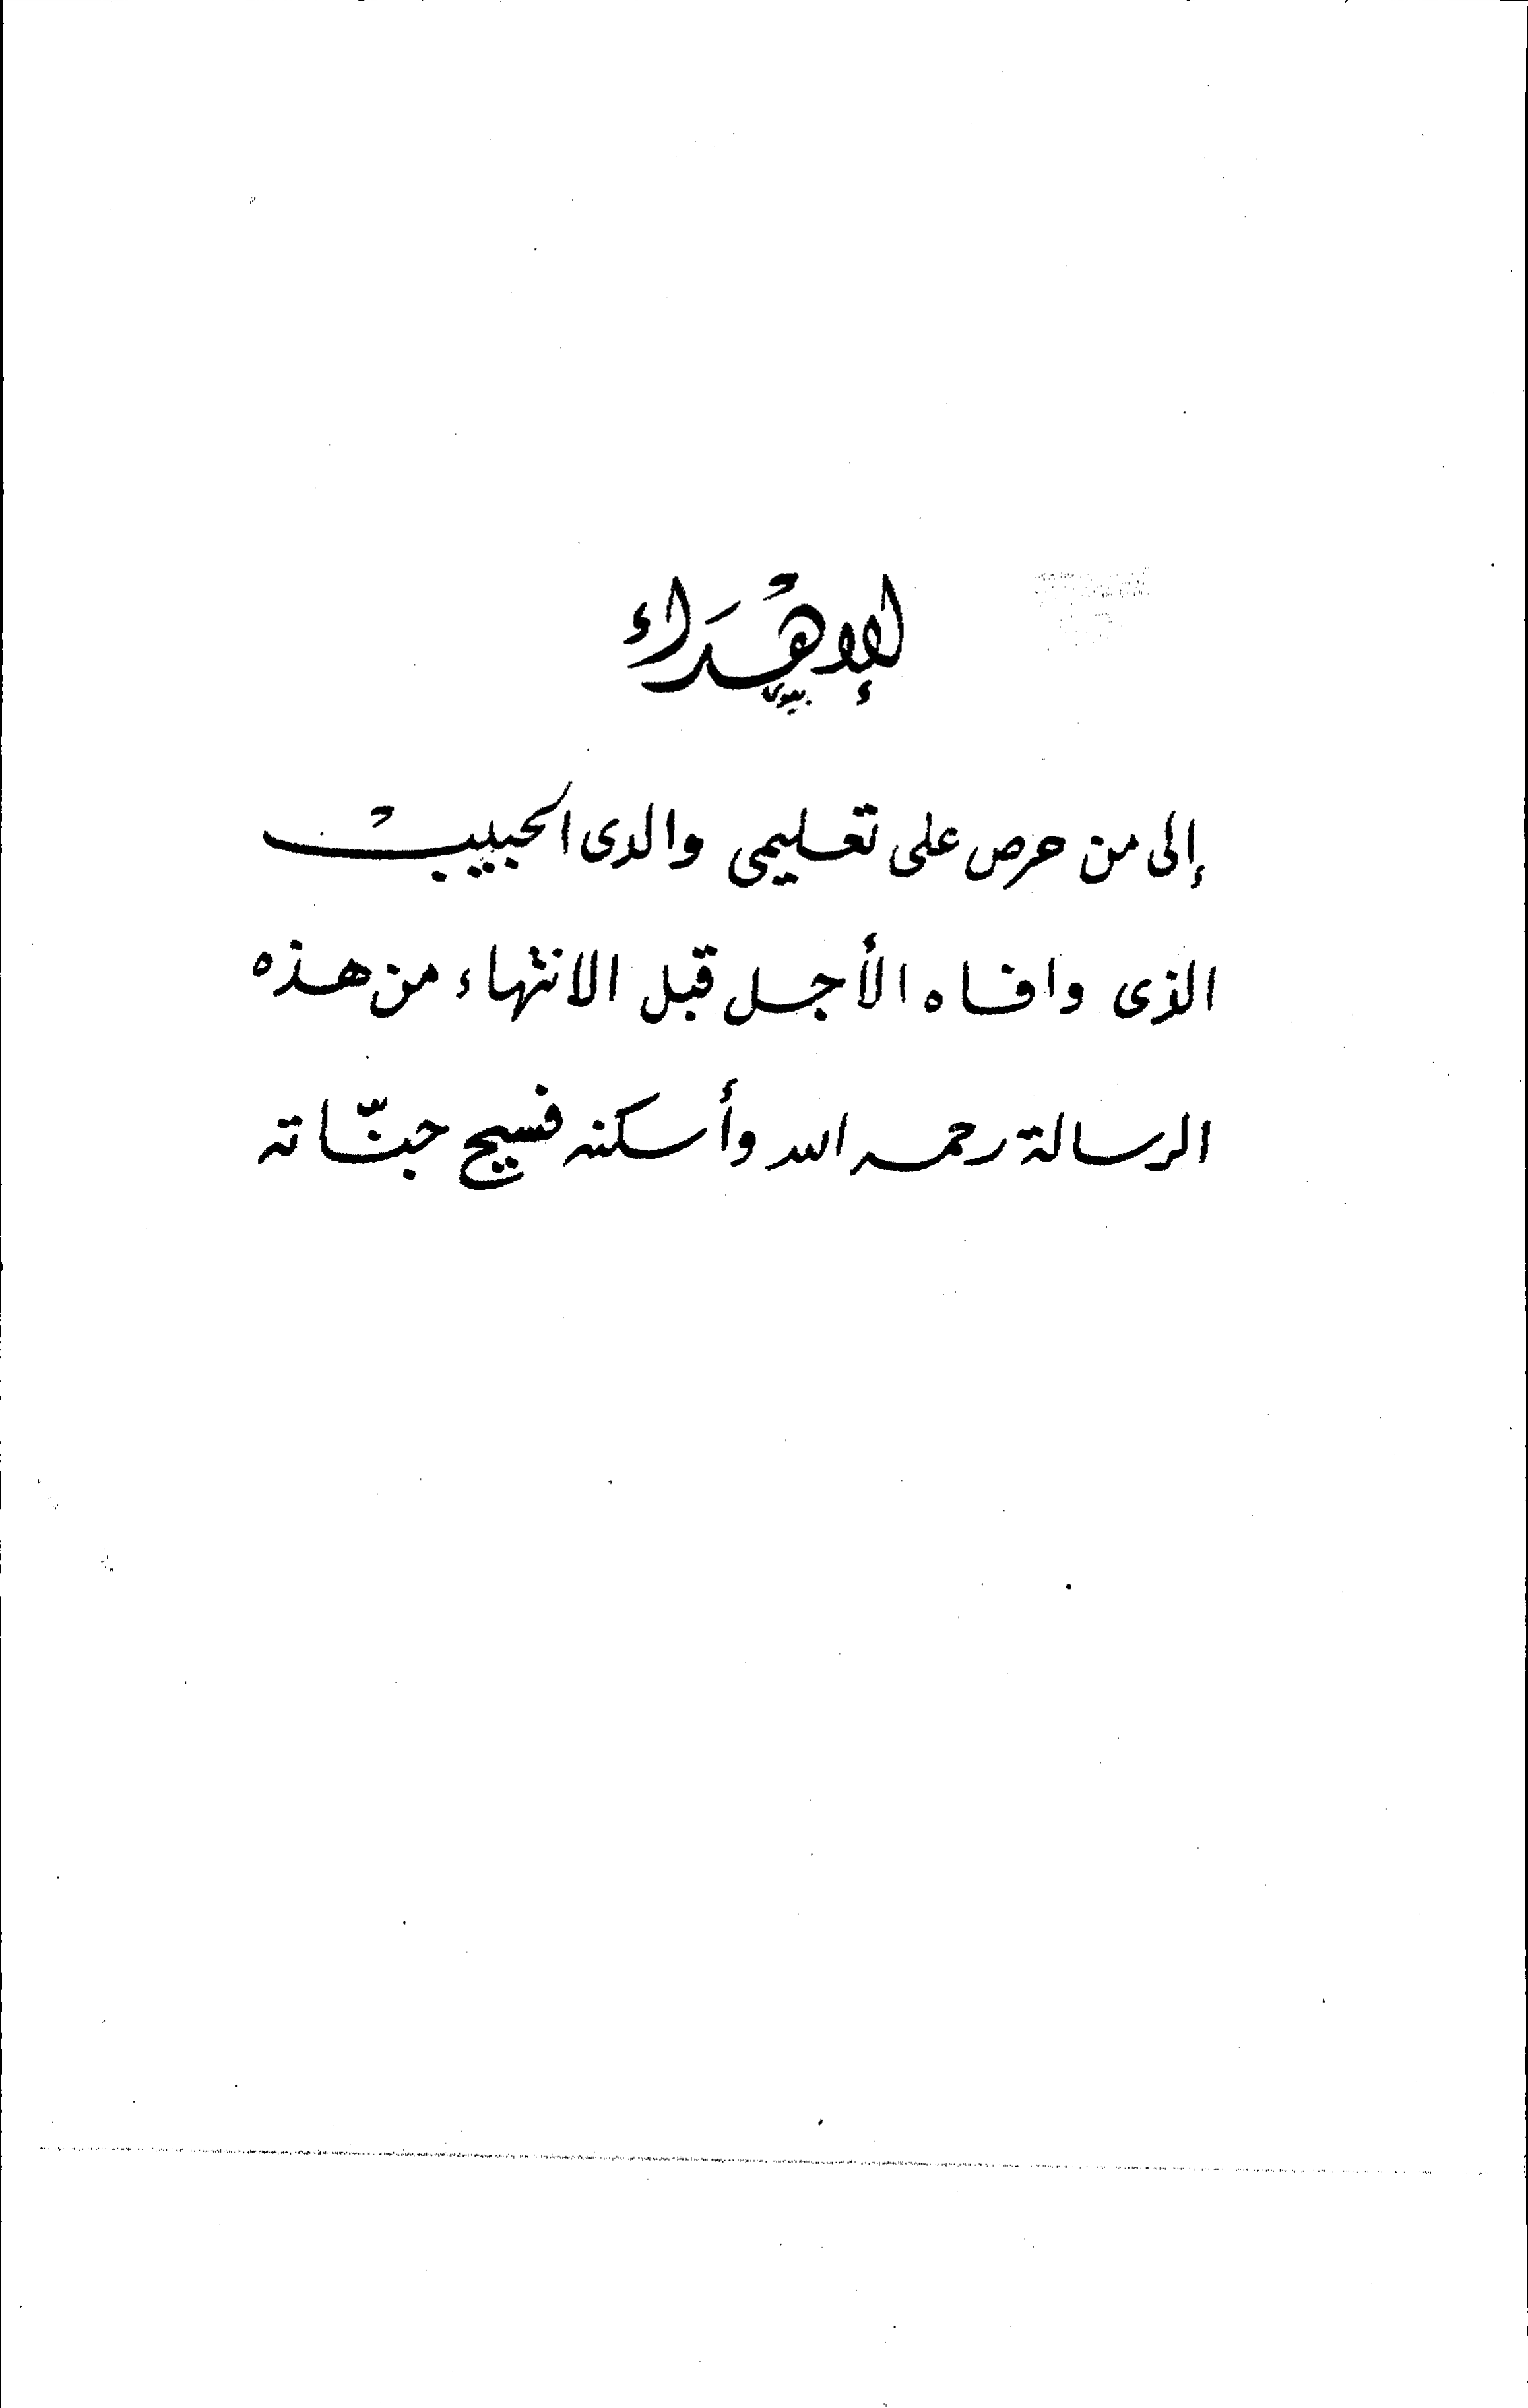 الإهْدَاء
إلى من حرص على تعليمى والدى الحبيبْ
الذى وافاه الأجل قبل الانتهاء من هذه
الرسالة رحمه الله وأسكنه فسيح جنّاته